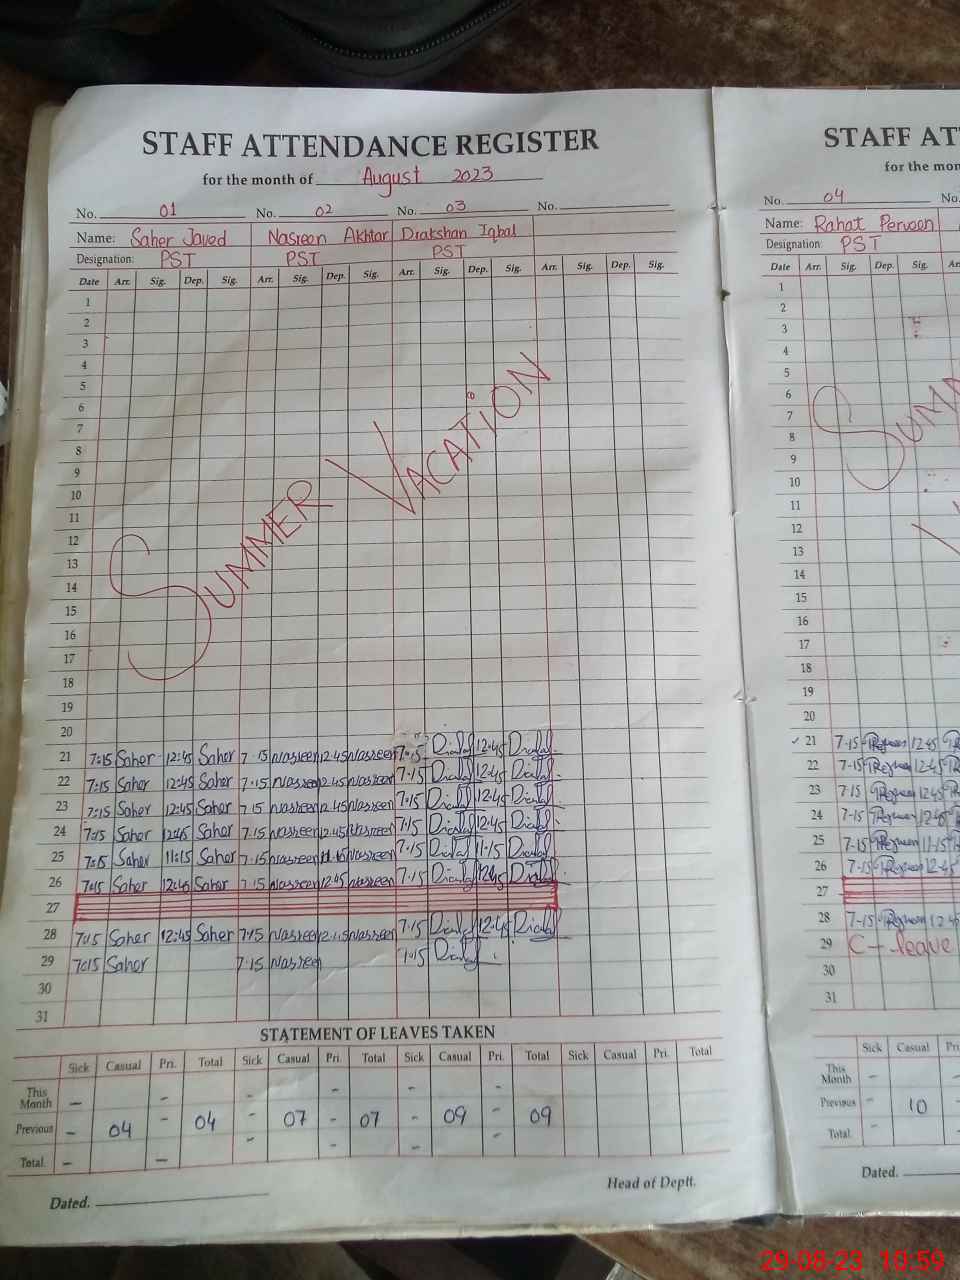 STAFF ATTENDANCE REGISTER
for the month of August 2023
No. 01 No. 02 No. 03 No.
Name: Saher Javed Nasreen Akhtar Drakshan Iqbal
Designation: PST PST PST
Date Arr. Sig. Dep. Sig. Arr. Sig. Dep. Sig. Arr. Sig. Dep. Sig. Arr. Sig. Dep. Sig.
1
2
3
4
5
6
7
8
9
10
11
12
13
14
15
16
17
18
19
20
SUMMER VACATION
21 7:15 Saher 12:45 Saher 7.15 Nasreen 12.45 Nasreen 7.15 12:45
22 7:15 Saher 12:45 Saher 7.15 Nasreen 12.45 Nasreen 7.15 12:45
23 7:15 Saher 12:45 Saher 7.15 Nasreen 12.45 Nasreen 7.15 12:45
24 7:15 Saher 12:45 Saher 7.15 Nasreen 12.45 Nasreen 7.15 12:45
25 7:15 Saher 11:15 Saher 7.15 Nasreen 11.15 Nasreen 7.15 11-15
26 7:15 Saher 12:45 Saher 7.15 Nasreen 12.45 Nasreen 7.15 12:45
27
28 7:15 Saher 12:45 Saher 7.15 Nasreen Nasreen 7.15 12:45
29 7:15 Saher 7.15 Nasreen 7.15
30
31
STATEMENT OF LEAVES TAKEN
Sick Casual Pri. Total Sick Casual Pri. Total Sick Casual Pri. Total Sick Casual Pri. Total
This Month - - - - - -
Previous - 04 - 04 - 07 - 07 - 09 - 09
Total. - - - - - -
Dated. Head of Deptt.
STAFF AT
for the mon
No. 04 No.
Name: Rahat Perveen
Designation: PST
Date Arr. Sig. Dep. Sig. Ar
1
2
3
4
5
6
7
8
9
10
11
12
13
14
15
16
17
18
19
20
SUMM
21 7-15 12:45
22 7-15 12.45
23 7-15 12.45
24 7-15 12.45
25 7-15 11-15
26 7-15 12.45
27
28 7-15 12.45
29 C-leave
30
31
Sick Casual P
This Month -
Previous - 10
Total. -
Dated.
29-08-23 10:59